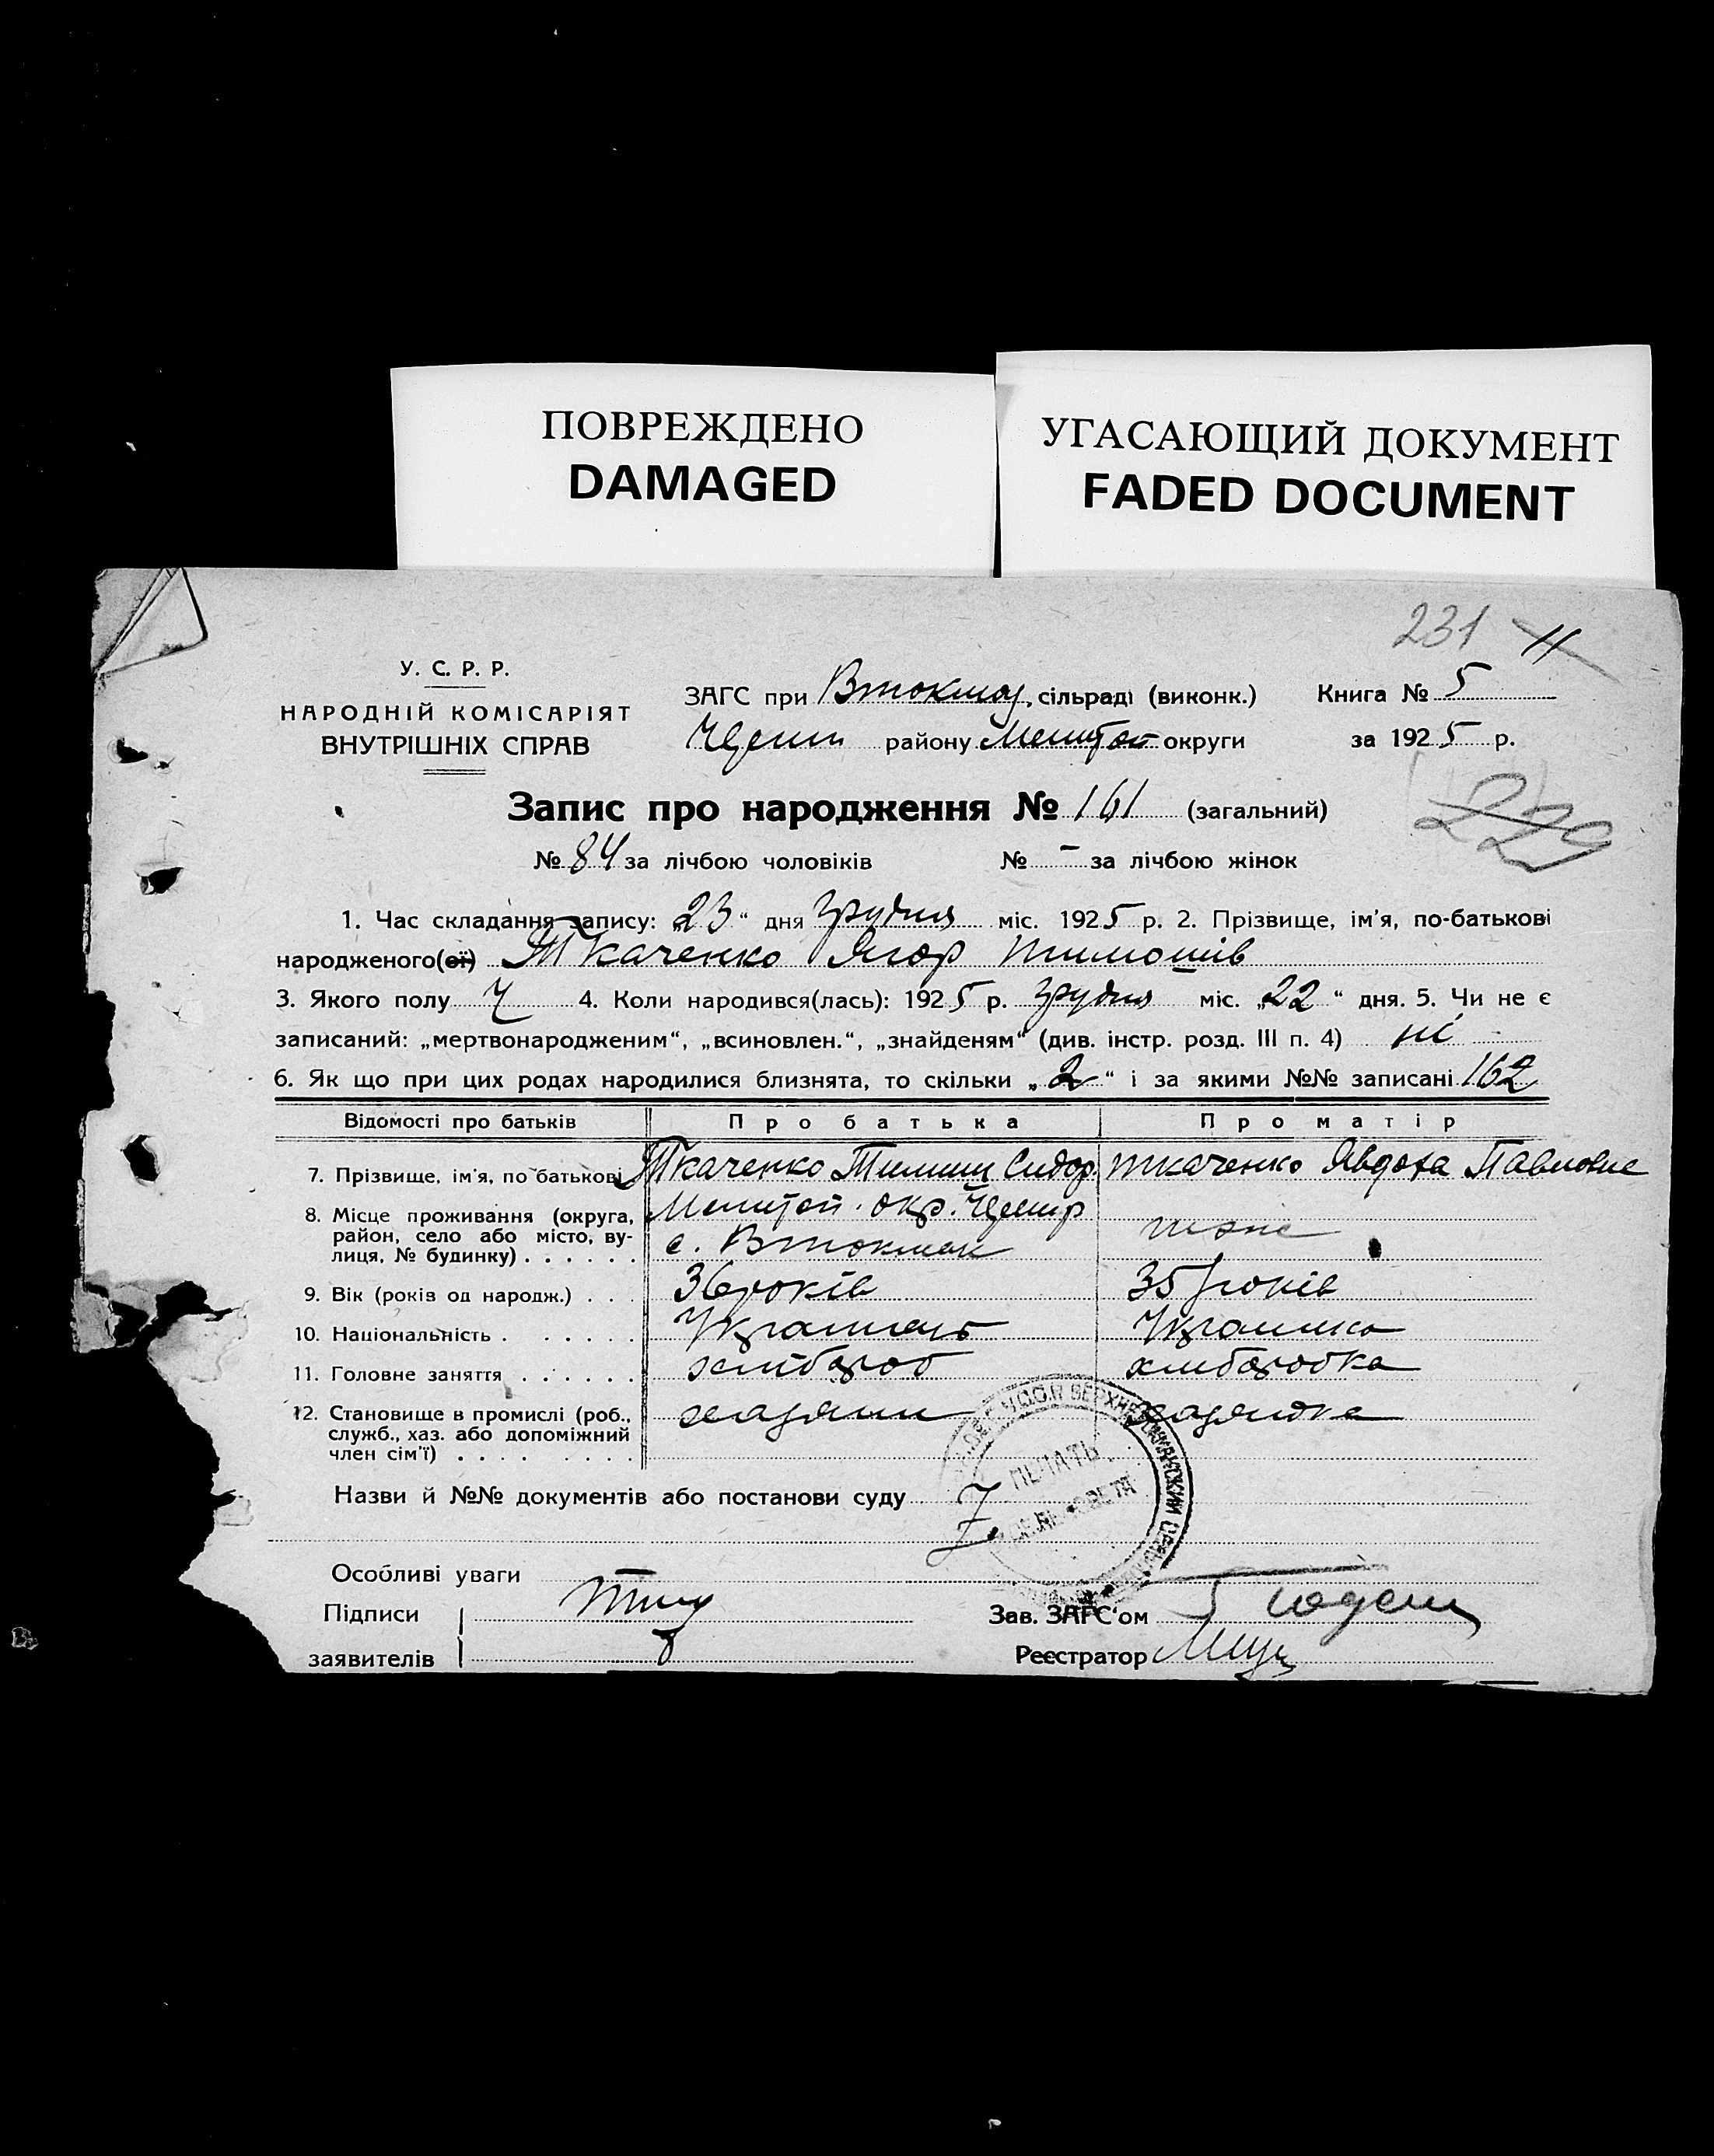 ПОВРЕЖДЕНО
DAMAGED
УГАСАЮЩИЙ ДОКУМЕНТ
FADED DOCUMENT
231 11
У. С. Р. Р.
НАРОДНІЙ КОМІСАРІЯТ
ВНУТРІШНІХ СПРАВ
ЗАГС при Втокмац. сільраді (виконк.)
району Мелітоп округи
Книга № 5
за 1925 р.
Запис про народження № 161 (загальний)
229
№ 84 за лічбою чоловіків № - за лічбою жінок
1. Час складання запису: „23“ дня грудня міс. 1925 р. 2. Прізвище, ім'я, по-батькові
народженого(ої) Ткаченко Ягор Тимошів
3. Якого полу Ч 4. Коли народився(лась): 1925 р. грудня міс. „22“ дня. 5. Чи не є
записаний: „мертвонародженим“, „всиновлен.“, „знайденям“ (див. інстр. розд. III п. 4) ні
6. Як що при цих родах народилися близнята, то скільки „2“ і за якими №№ записані 162
Відомості про батьків Про батька Про матір
7. Прізвище, ім'я, по батькові Ткаченко Тимиш Сидор. Ткаченко Явдоха Павловне
8. Місце проживання (округа, район, село або місто, вулиця, № будинку) . . . . . .
Мелітоп. окр.
с. Втокмак
тоже
9. Вік (років од народж.) . . . 36 років 35 років
10. Національність . . . . . . Українець Українка
11. Головне заняття . . . . . . хлібороб хліборобка
12. Становище в промислі (роб., служб., хаз. або допоміжний член сім'ї) . . . . . . . .
хазяин хазяйка
Назви й №№ документів або постанови суду
ПЕЧАТЬ
Особливі уваги
Підписи
заявителів
Зав. ЗАГС'ом
Реєстратор